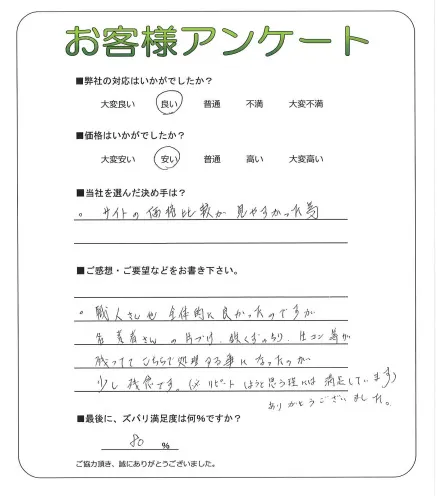 お客様アンケート
■弊社の対応はいかがでしたか？
大変良い 良い 普通 不満 大変不満
■価格はいかがでしたか？
大変安い 安い 普通 高い 大変高い
■当社を選んだ決め手は？
。サイトの価格比較が見やすかった為
■ご感想・ご要望などをお書き下さい。
。職人さんも全体的に良かったのですが
業者さんの片づけ、鉄くず 、生コン等が
残っててこちらで処理する事になったのが
少し残念です。(※リピートしようと思う程には満足しています)
ありがとうございました。
■最後に、ズバリ満足度は何%ですか？
80 %
ご協力頂き、誠にありがとうございました。